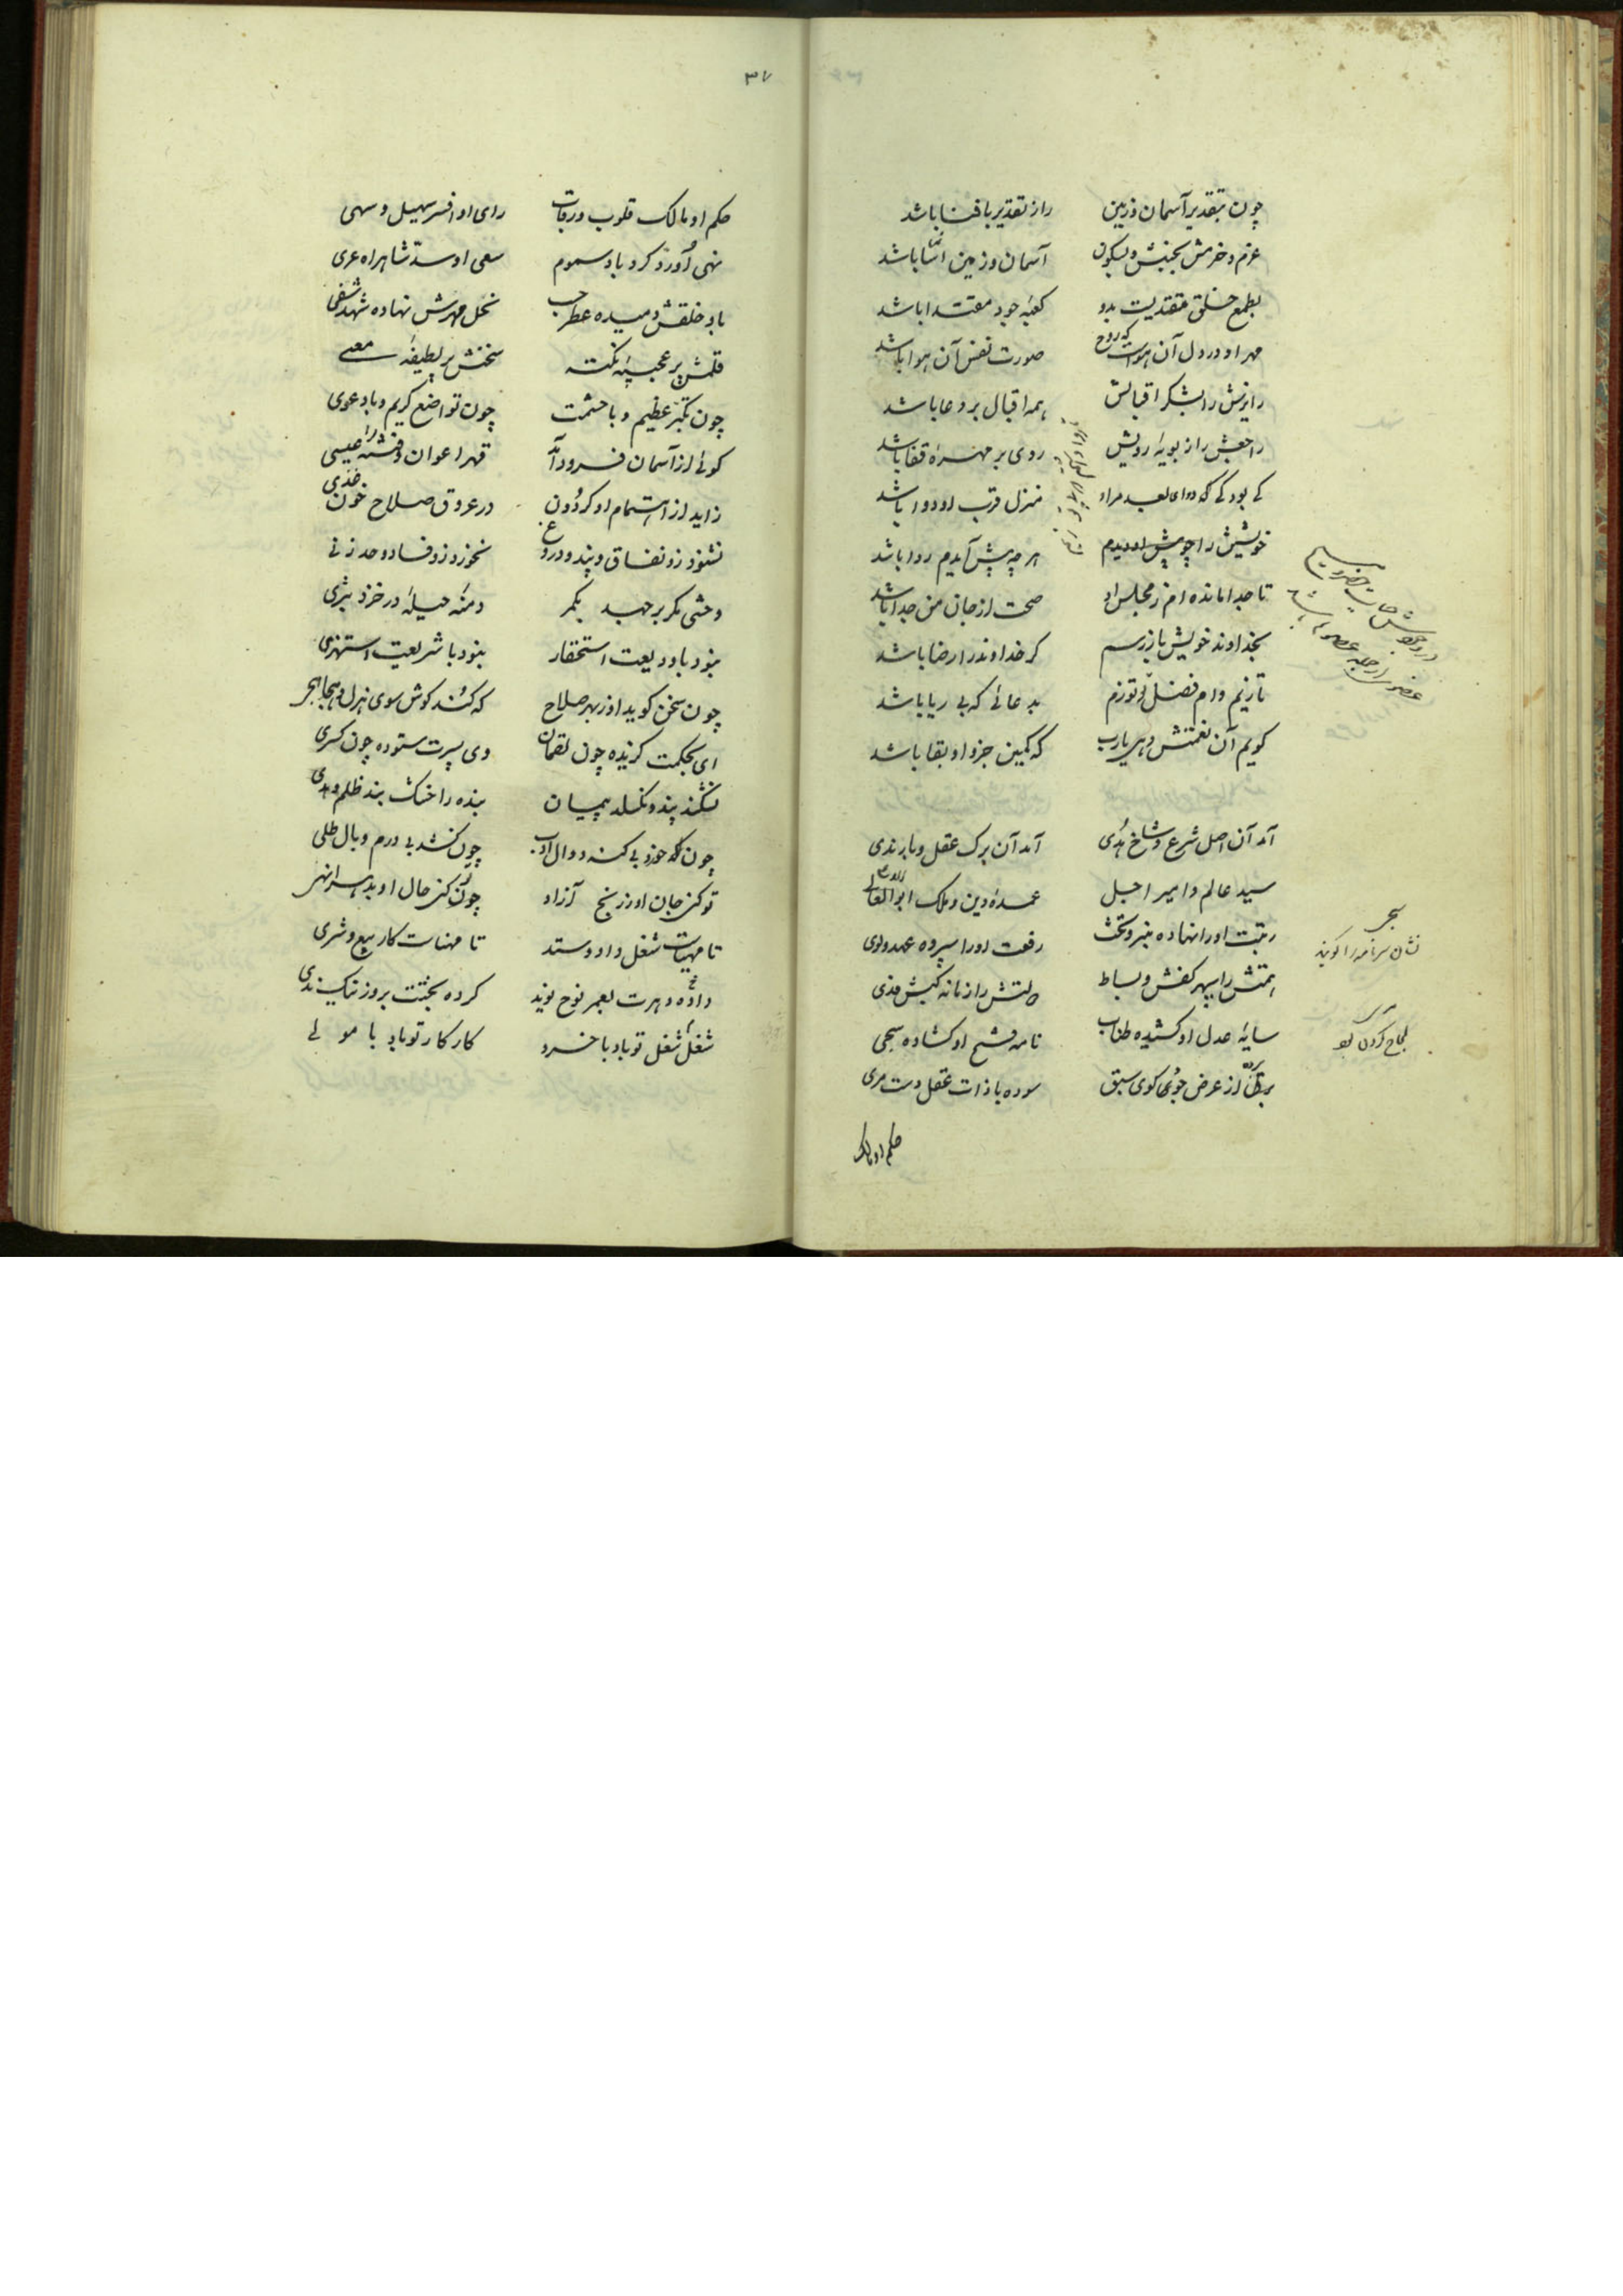 ۳۷
چون بتقدیر آسمان و زمین راز تقدیر با فنا باشد
عزم و حزمش بجنبش و بسکون آسمان و زمین آسا باشد
بطمع خلق مقتدیست بدو کعبه جود مقتدا باشد
مهر او در دل آن هواست که روح صورت نفس آن هوا باشد
زایرش را بشکر اقبالش همه اقبال بر دعا باشد
راجعش را ز بویه رویش روی بر مهره قفا باشد
کی بود کی که بعد مراد منزل قرب او دوا باشد
خویشتن را چو پیش او دیدم هر چه پیش آیدم روا باشد
تا جدا مانده ام ز مجلس او صحت از جان من جدا باشد
بخداوند خویش باز رسم گر خداوند را رضا باشد
تا زیم وام فضل او توزم بدعائی که بی ریا باشد
گویم آن نعمتش دهی یارب که کمین جزو او بقا باشد
آمد آن اصل شرع و شاخ هدی آمد آن برک عقل و بار ندی
سید عالم و امیر اجل عمده دین و ملک ابوالعالی
رتبت اورا نهاده منبر و تخت رفعت اورا سپرده عهد و لوی
همتش را سپهر کفش و بساط دولتش را زمانه کبش فدی
سایه عدل او کشیده طناب نامه فتح او گشاده سحی
از عرض جوی گوی سبق سوده با ذات عقل دست مری
حکم او مالک
نشان سر نامه را گویند
لجاج کردن بود
حکم او مالک قلوب و رقاب رای او افسر سهیل و سهی
نهی او زد گرد باد سموم سعی او سد شاهراه عری
باد خلقش دمیده عطر حب نحل مهرش نهاده شهد شفی
قلمش پر عجیبه نکته سخنش پر لطیفه معنی
چون تکبر عظیم و با حشمت چون تواضع کریم و با دعوی
گوئی از آسمان فرود آمد قهر اعوان فتنه را عیسی
زاید از اهتمام او گردون در عروق صلاح خون غذی
نشنود زو نفاق و پند و دروغ نخورد زو فساد و حد زنی
وحشی مکر بر جهد بکمر دمنه حیله در خزد بثری
نبود با ودیعت استحقار نبود با شریعت استهزی
چون سخن گوید او ز بهر صلاح که کند گوش سوی هزل و هجا
ای بحکمت گزیده چون لقمان وی بسیرت ستوده چون کسری
نشکند پند و نگسلد پیمان بنده را خشک بند ظلم و بدی
چون که خورد بی گنه دوال ادب چون کشد بی درم وبال طلی
تو کنی جان او ز رنج آزاد چون کنی حال او بد هر انهی
تا مهیاست شغل داد و ستد تا مهناست کار بیع و شری
داده دهرت بعمر نوح نوید کرده بختت بروز نیک ندی
شغل شغل تو باد با خسرو کار کار تو باد با مولی